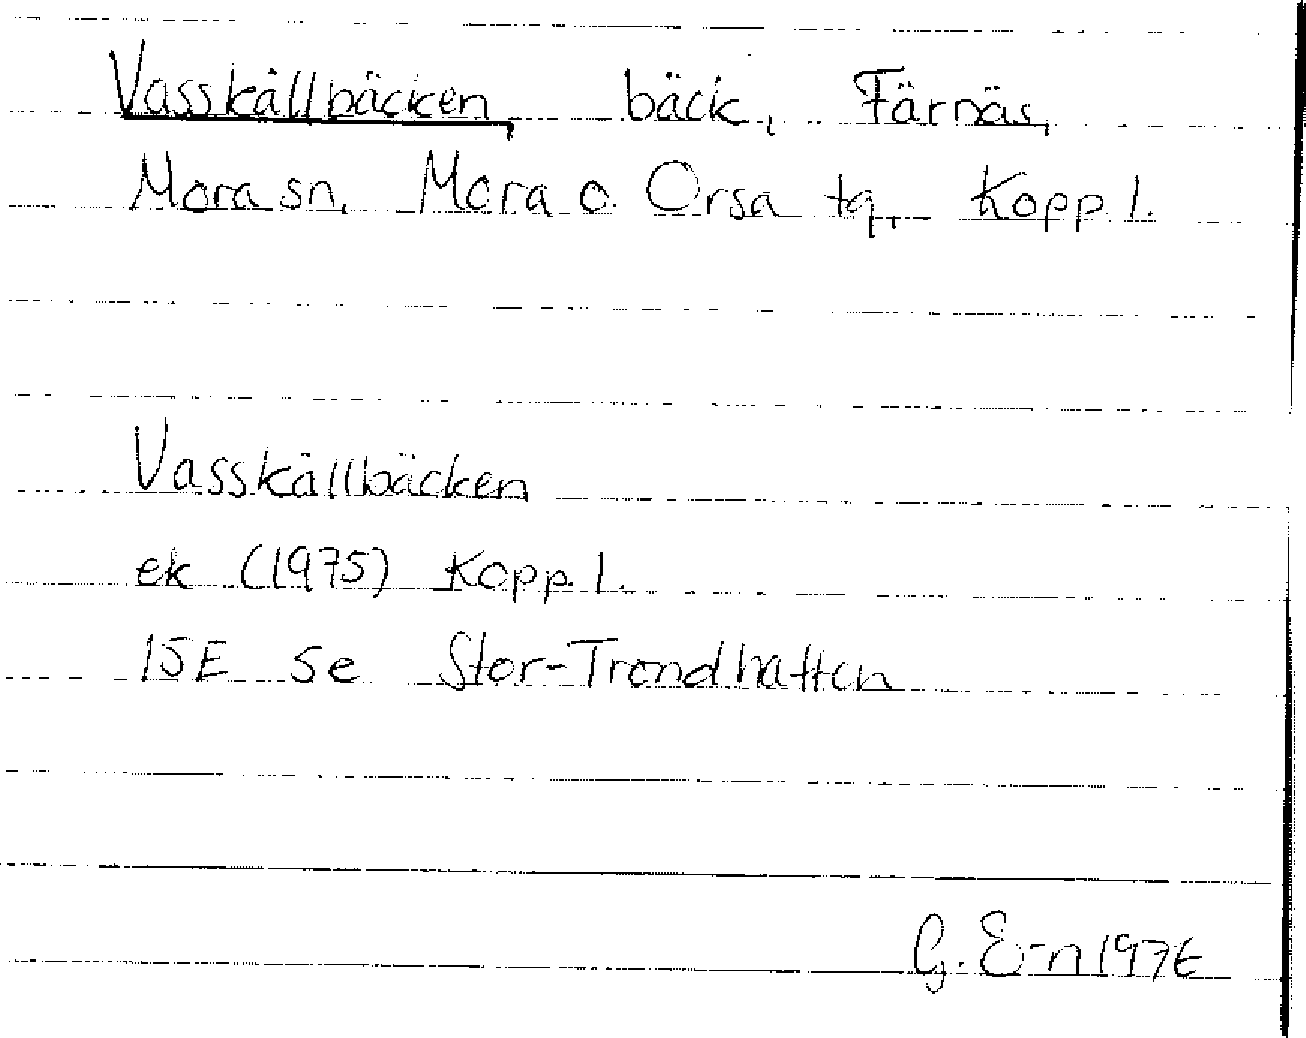 Vasskällbäcken, bäck, Färnäs,
Mora sn, Mora o. Orsa tg., Kopp. l.
Vasskällbäcken
ek (1975) Kopp. l.
15E Se Stor-Trondhatten
G. E-n 1976